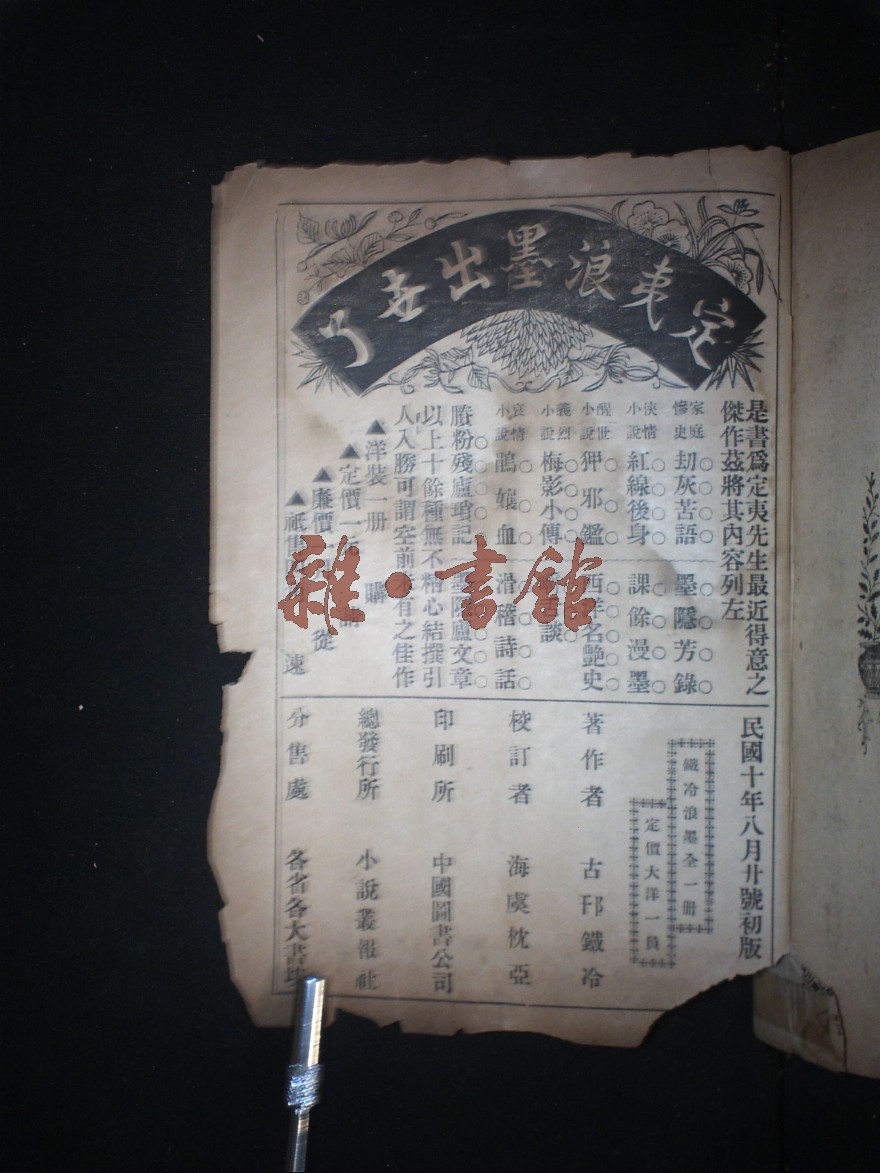 定夷浪墨出世了
是書爲定夷先生最近得意之
傑作茲將其內容列左
家庭慘史 刧灰苦語 墨隱芳錄
俠情小說 紅線後身 課餘漫墨
醒世小說 狎邪鑑 西洋名艷史
義烈小說 梅影小傳 談
哀情小說 鵑孃血 滑稽詩話
賸粉殘廬瑣記 墨隱廬文章
以上十餘種無不精心結撰引
人入勝可謂空前未有之佳作
▲洋裝一册 購
▲定價一元
▲廉價 從
▲祗售 速
民國十年八月廿號初版
鐵冷浪墨全一册
定價大洋一員
著作者 古邗鐵冷
校訂者 海虞枕亞
印刷所 中國圖書公司
總發行所 小說叢報社
分售處 各省各大書坊
雜·書館